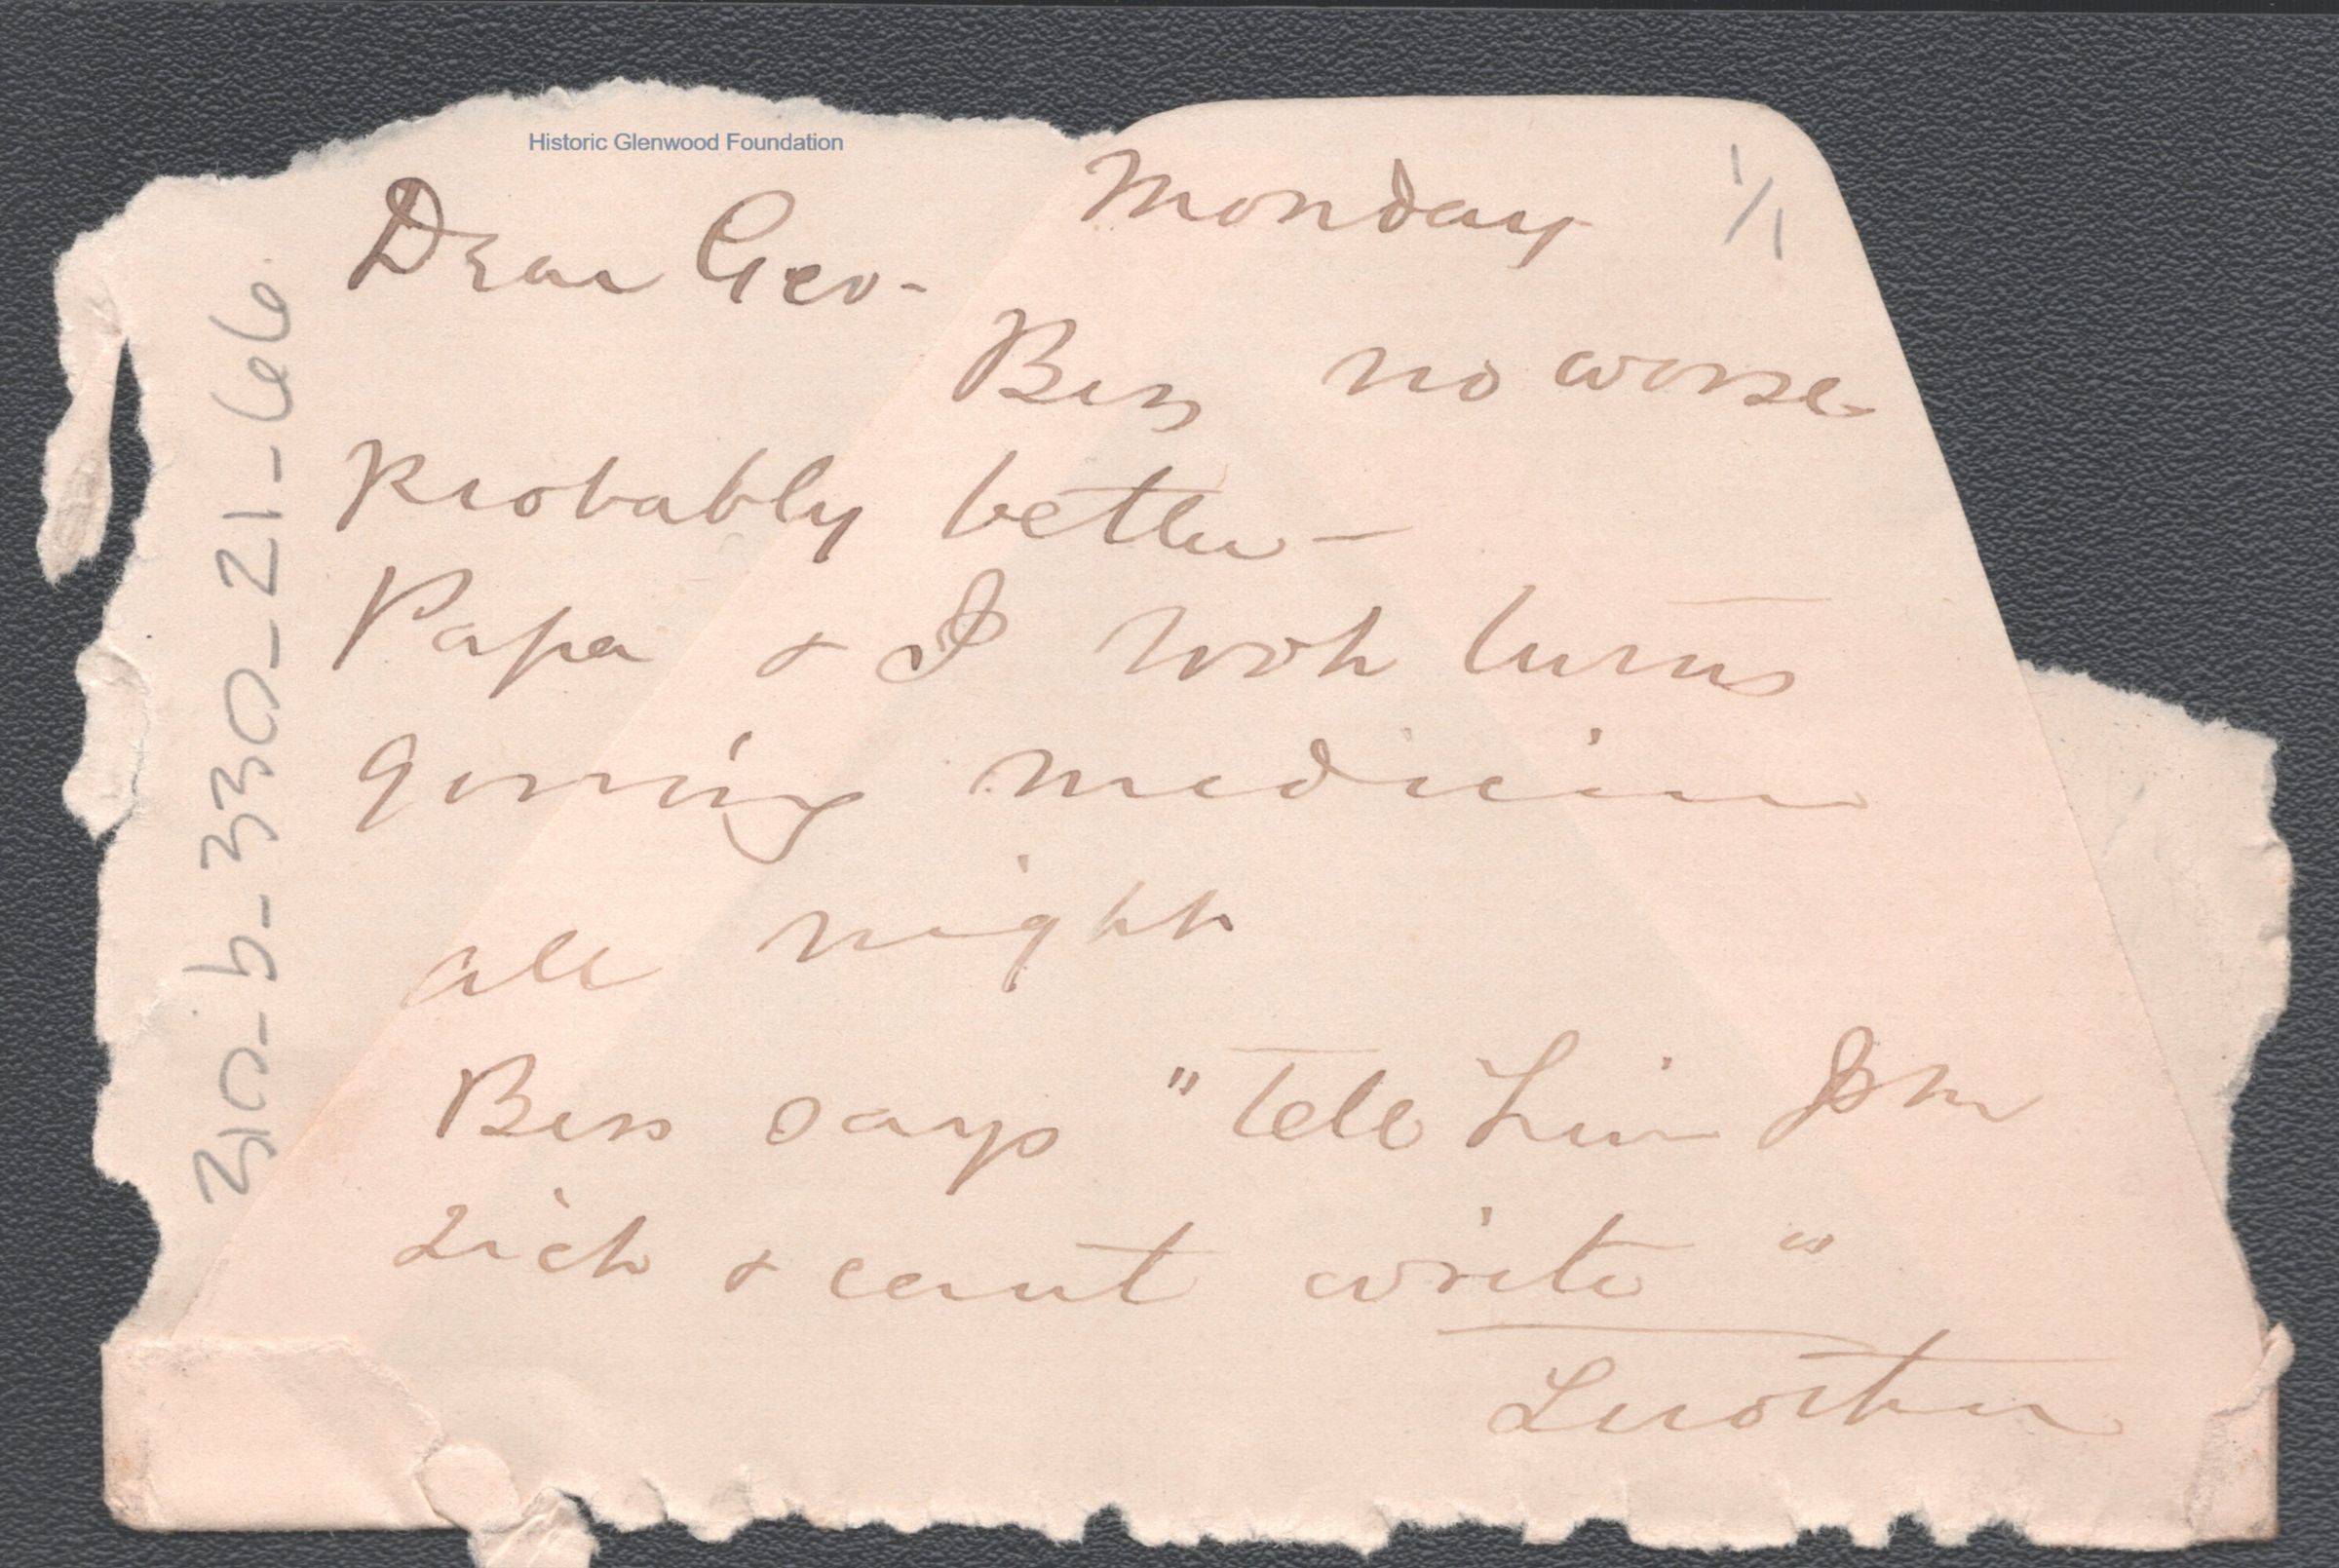 Historic Glenwood Foundation
Monday 1/1
Dear Geo-
Bess no worse
probably better -
Papa & I took turns
giving medicine
all night
Bess says "Tell him I'm
sick & can't write"
310-b-330-21-66